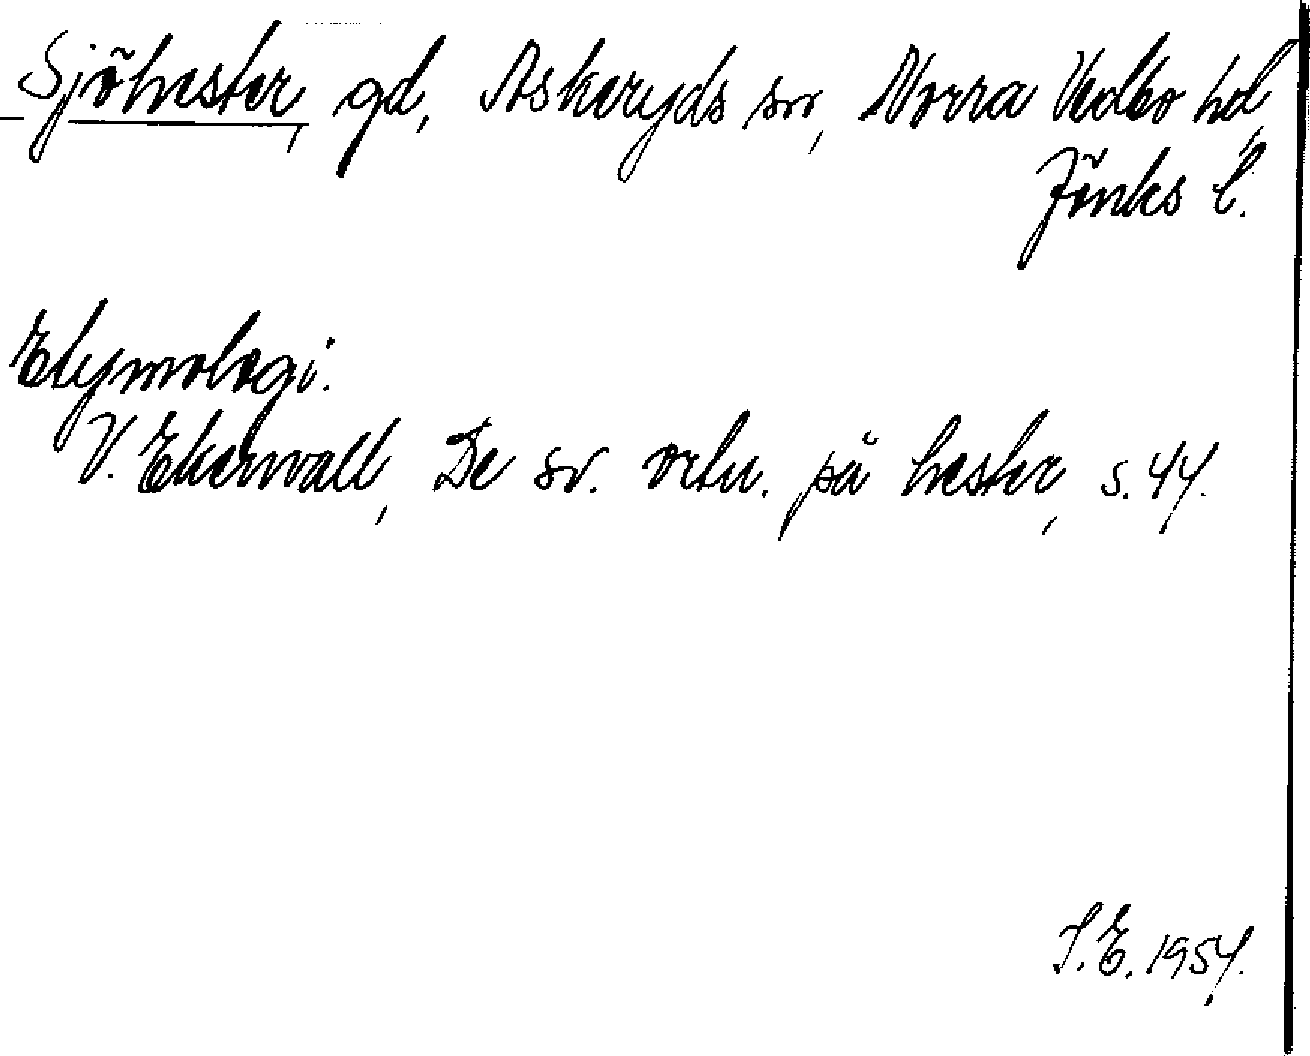 Sjöhester, gd, Askeryds sn, Norra Vedbo hd,
Jönks l.
Etymologi.
V. Ekenvall, De sv. ortn. på hester, s. 44.
S. E. 1954.